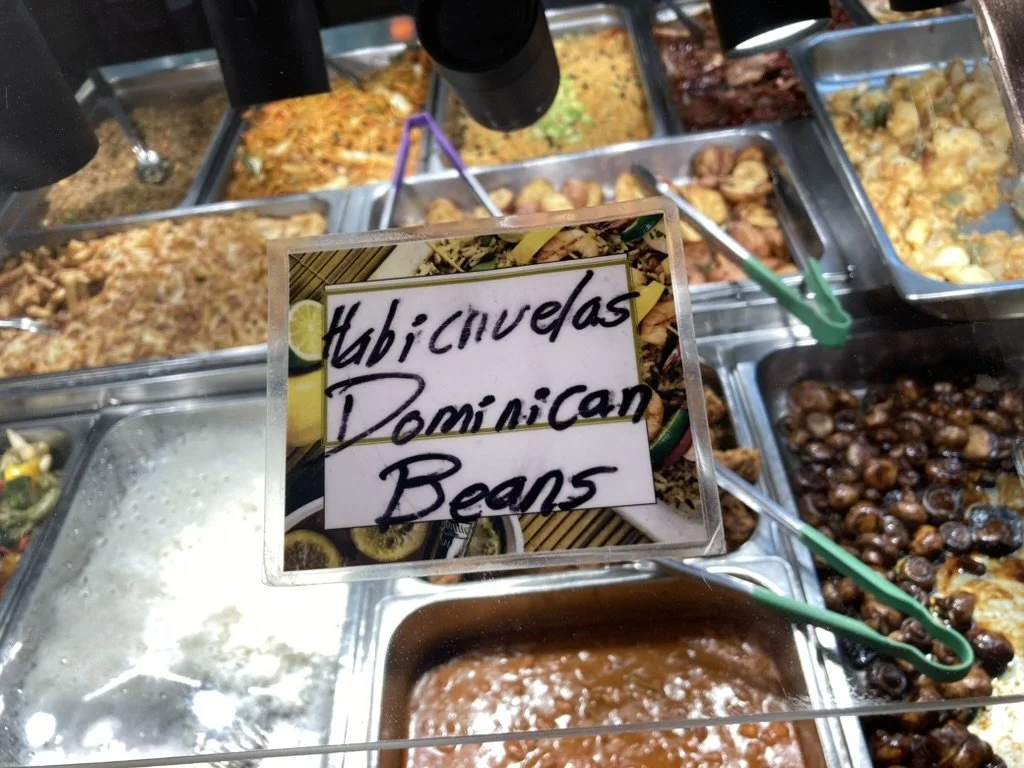 Habichuelas
Dominican
Beans